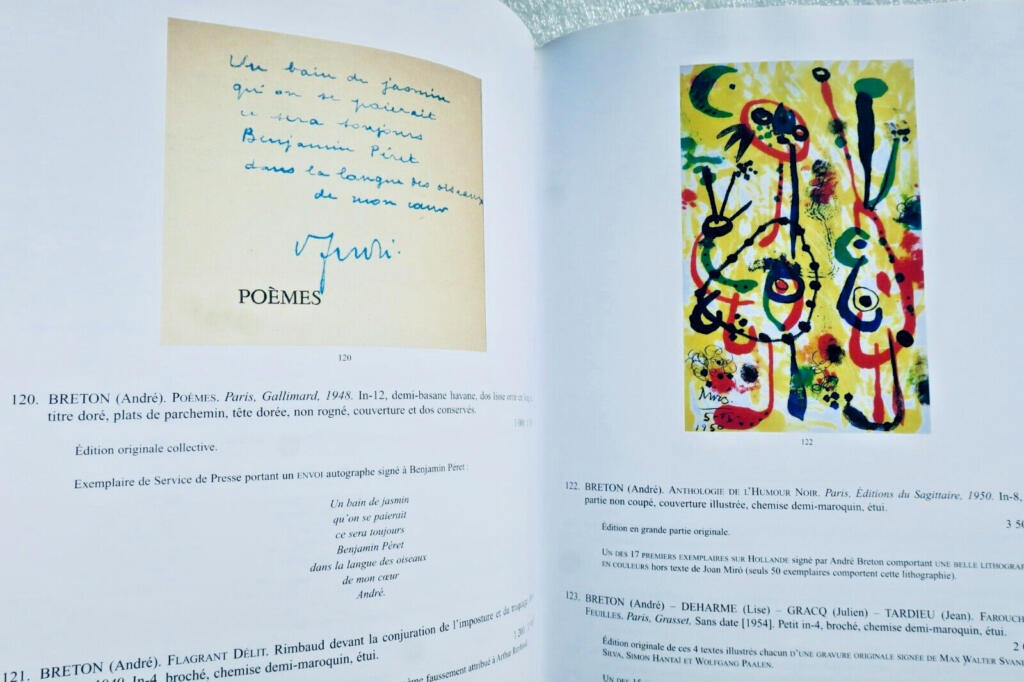 Un bain de jasmin
qu'on se paierait
ce sera toujours
Benjamin Péret
dans la langue des oiseaux
de mon cœur
André.
POÈMES
120
120. BRETON (André). POÈMES. Paris, Gallimard, 1948. In-12, demi-basane havane, dos lisse orné
titre doré, plats de parchemin, tête dorée, non rogné, couverture et dos conservés.
Édition originale collective.
Exemplaire de Service de Presse portant un ENVOI autographe signé à Benjamin Péret :
Un bain de jasmin
qu'on se paierait
ce sera toujours
Benjamin Péret
dans la langue des oiseaux
de mon cœur
André.
121. BRETON (André). FLAGRANT DÉLIT. Rimbaud devant la conjuration de l'imposture et du truquage
1949. In-4, broché, chemise demi-maroquin, étui.
faussement attribué à Arthur Rimbaud
Miró.
1950
122
122. BRETON (André). ANTHOLOGIE DE L'HUMOUR NOIR. Paris, Éditions du Sagittaire, 1950. In-8,
partie non coupé, couverture illustrée, chemise demi-maroquin, étui.
3 50
Édition en grande partie originale.
UN DES 17 PREMIERS EXEMPLAIRES SUR HOLLANDE signé par André Breton comportant UNE BELLE LITHOGRAP
EN COULEURS hors texte de Joan Miró (seuls 50 exemplaires comportent cette lithographie).
123. BRETON (André) – DEHARME (Lise) – GRACQ (Julien) – TARDIEU (Jean). FAROUCH
FEUILLES. Paris, Grasset. Sans date [1954]. Petit in-4, broché, chemise demi-maroquin, étui.
2 0
Édition originale de ces 4 textes illustrés chacun D'UNE GRAVURE ORIGINALE SIGNÉE DE MAX WALTER SVANB
SILVA, SIMON HANTAÏ ET WOLFGANG PAALEN.
UN DES 15